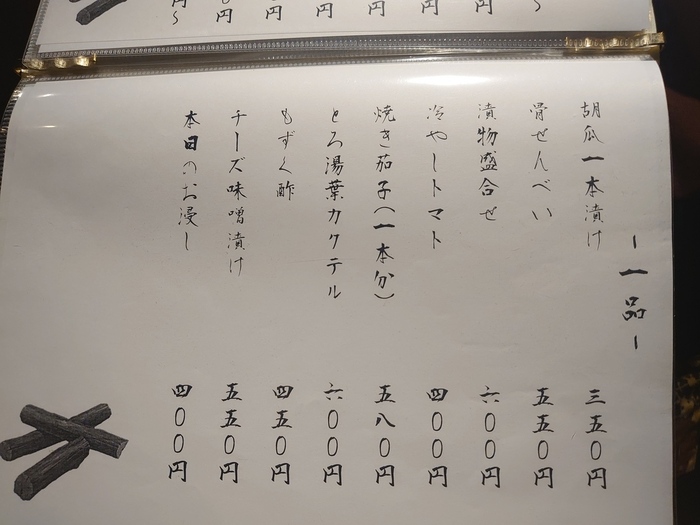 ー一品ー
胡瓜一本漬け
三五〇円
骨せんべい
五五〇円
漬物盛合せ
六〇〇円
冷やしトマト
四〇〇円
焼き茄子(一本分)
五八〇円
とろ湯葉カクテル
六〇〇円
もずく酢
四五〇円
チーズ味噌漬け
五五〇円
本日のお浸し
四〇〇円